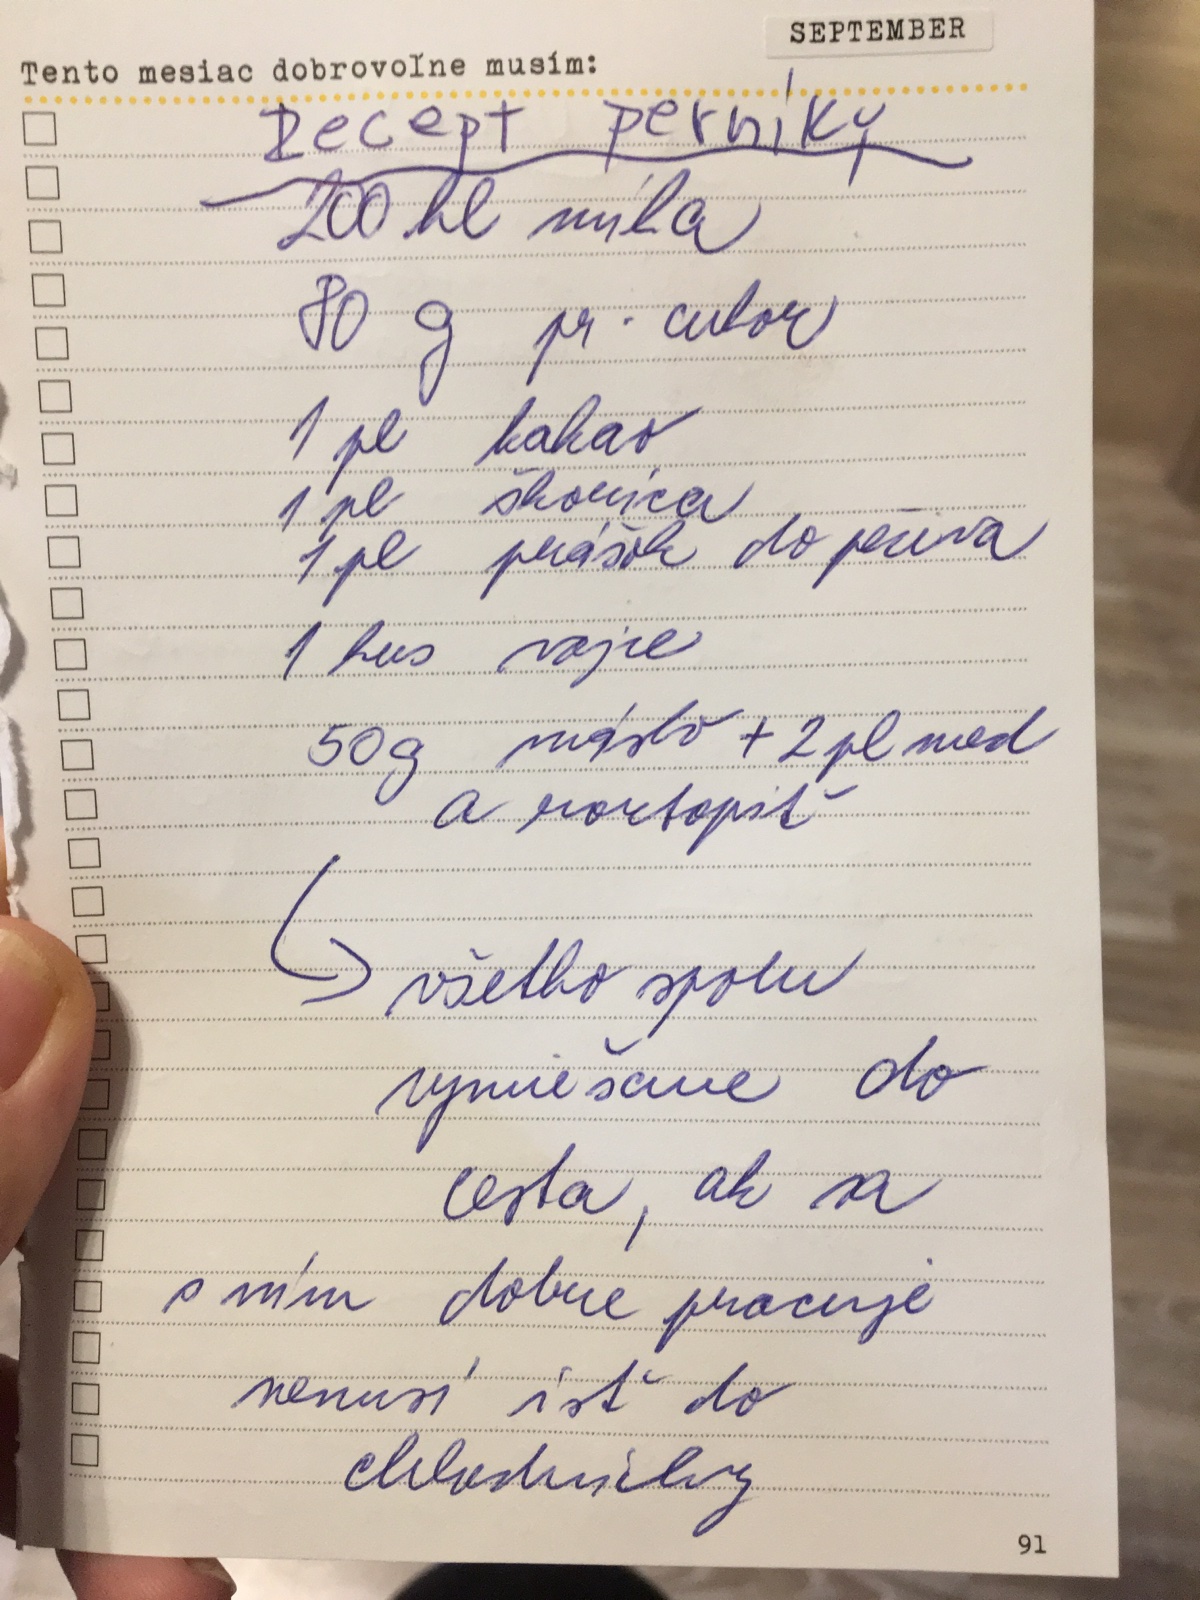 SEPTEMBER
Tento mesiac dobrovoľne musím:
Recept perníky
200 hl múka
80 g pr. cukor
1 pl kakao
1 pl škorica
1 pl prášok do pečiva
1 kus vajce
50g máslo + 2 pl med
a roztopiť
všetko spolu
vymiešame do
cesta, ak sa
s ním dobre pracuje
nemusí ísť do
chladničky
91